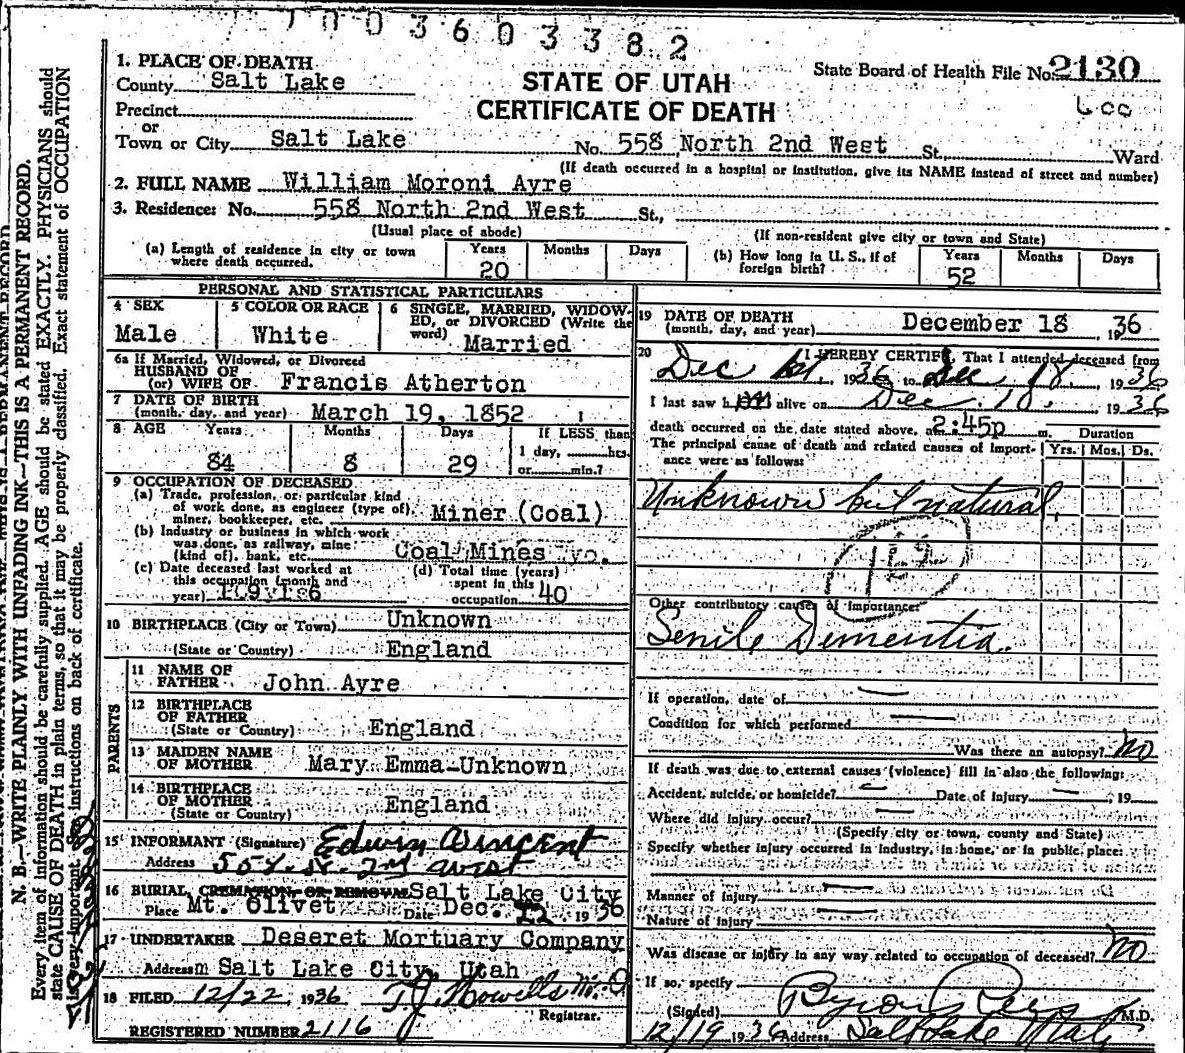 7003603382
STATE OF UTAH
CERTIFICATE OF DEATH
State Board of Health File No. 2130
1. PLACE OF DEATH
County Salt Lake
Precinct
or
Town or City Salt Lake No. 558 North 2nd West St., Ward
(If death occurred in a hospital or institution, give its NAME instead of street and number)
2. FULL NAME William Moroni Ayre
3. Residence: No. 558 North 2nd West St.,
(Usual place of abode) (If non-resident give city or town and State)
(a) Length of residence in city or town where death occurred. Years 20 Months Days
(b) How long in U. S., if of foreign birth? Years 52 Months Days
PERSONAL AND STATISTICAL PARTICULARS
4 SEX Male
5 COLOR OR RACE White
6 SINGLE, MARRIED, WIDOWED, or DIVORCED (Write the word) Married
6a If Married, Widowed, or Divorced
HUSBAND OF
(or) WIFE OF Francis Atherton
7 DATE OF BIRTH
(month, day, and year) March 19, 1852
8 AGE Years 84 Months 8 Days 29 If LESS than 1 day, hrs. or min.?
9 OCCUPATION OF DECEASED
(a) Trade, profession, or particular kind
of work done, as engineer (type of),
miner, bookkeeper, etc. Miner (Coal)
(b) Industry or business in which work
was done, as railway, mine
(kind of), bank, etc. Coal Mines Wyo.
(c) Date deceased last worked at
this occupation (month and
year)
(d) Total time (years)
spent in this
occupation 40
10 BIRTHPLACE (City or Town) Unknown
(State or Country) England
PARENTS
11 NAME OF
FATHER John Ayre
12 BIRTHPLACE
OF FATHER
(State or Country) England
13 MAIDEN NAME
OF MOTHER Mary Emma-Unknown
14 BIRTHPLACE
OF MOTHER
(State or Country) England
15 INFORMANT (Signature) Edwin Vincent
Address
16 BURIAL, CREMATION, OR REMOVAL Salt Lake City
Place Mt. Olivet Date Dec. 22 1936
17 UNDERTAKER Deseret Mortuary Company
Address Salt Lake City, Utah
18 FILED 12/22, 1936 T.J. Howells M.D.
Registrar.
REGISTERED NUMBER 2116
19 DATE OF DEATH
(month, day, and year) December 18 1936
20 I HEREBY CERTIFY, That I attended deceased from
Dec 1st, 1936 to Dec. 18, 1936
I last saw him alive on Dec. 18. 1936
death occurred on the date stated above, at 2:45p m.
The principal cause of death and related causes of importance were as follows: Duration Yrs. Mos. Ds.
Unknown but natural
Other contributory causes of importance:
Senile Dementia.
If operation, date of
Condition for which performed
Was there an autopsy? No
If death was due to external causes (violence) fill in also the following:
Accident, suicide, or homicide? Date of injury , 19
Where did injury occur?
(Specify city or town, county and State)
Specify whether injury occurred in industry, in home, or in public place:
Manner of injury
Nature of injury
Was disease or injury in any way related to occupation of deceased? No
If so, specify
(Signed) Byron Rees M.D.
12/19 1936 Address Salt Lake Utah
N. B.—WRITE PLAINLY WITH UNFADING INK—THIS IS A PERMANENT RECORD.
Every item of information should be carefully supplied. AGE should be stated EXACTLY. PHYSICIANS should
state CAUSE OF DEATH in plain terms, so that it may be properly classified. Exact statement of OCCUPATION
is very important. See instructions on back of certificate.